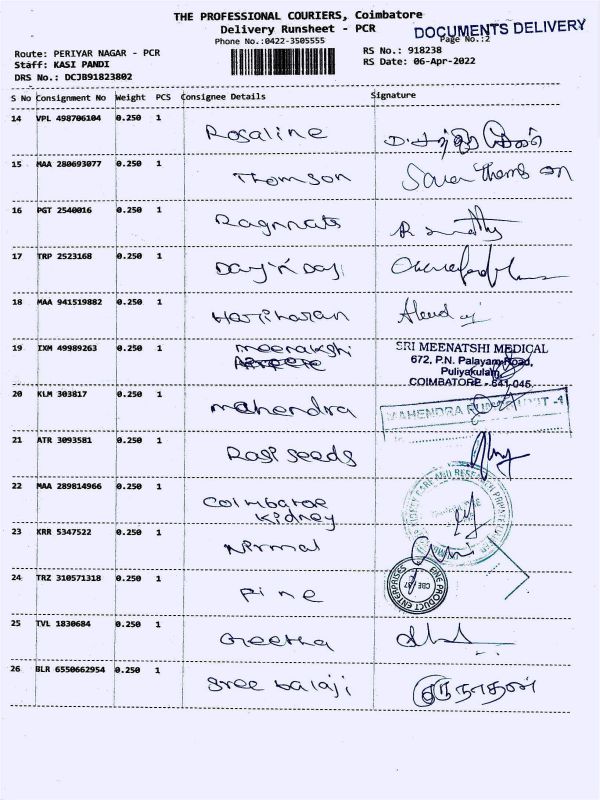 THE PROFESSIONAL COURIERS, Coimbatore
Delivery Runsheet - PCR
DOCUMENTS DELIVERY
Phone No.:0422-3505555
Page No.:2
Route: PERIYAR NAGAR - PCR
RS No.: 918238
Staff: KASI PANDI
RS Date: 06-Apr-2022
DRS No.: DCJB91823802
S No Consignment No Weight PCS Consignee Details Signature
14 VPL 498706104 0.250 1 Rosaline
15 MAA 280693077 0.250 1 Thomson
16 PGT 2540016 0.250 1
17 TRP 2523168 0.250 1
18 MAA 941519882 0.250 1 Hariharan
19 IXM 49989263 0.250 1 meenakshi
SRI MEENATSHI MEDICAL
672, P.N. Palayam Road,
Puliyakulam,
COIMBATORE - 641 045.
20 KLM 303817 0.250 1 mahendra
MAHENDRA
21 ATR 3093581 0.250 1 Rasi seeds
22 MAA 289814966 0.250 1 Coimbatore
Kidney
23 KRR 5347522 0.250 1 Nirmal
24 TRZ 310571318 0.250 1 Pine
PINE PRODUCT ENTERPRISES
25 TVL 1830684 0.250 1 Geetha
26 BLR 6550662954 0.250 1 Sree balaji